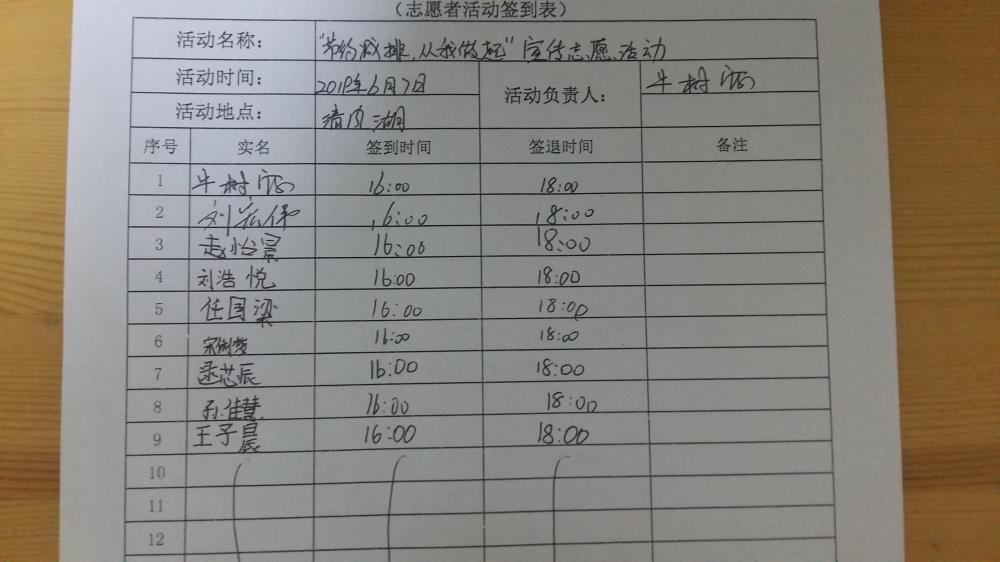 （志愿者活动签到表）
活动名称： “节约减排，从我做起”宣传志愿活动
活动时间： 2019年6月7日 活动负责人： 牛树
活动地点： 清风湖
序号 实名 签到时间 签退时间 备注
1 牛树 16:00 18:00
2 刘宏伟 16:00 18:00
3 赵怡景 16:00 18:00
4 刘浩悦 16:00 18:00
5 任国梁 16:00 18:00
6 宋 16:00 18:00
7 芯辰 16:00 18:00
8 孙佳慧 16:00 18:00
9 王子晨 16:00 18:00
10
11
12